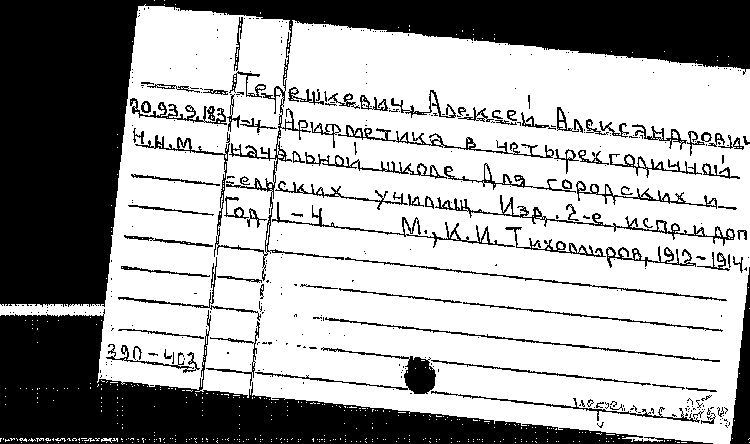 Терешкевич, Алексей Александрович
20.93.9.183 1-4 Арифметика в четырехгодичной
Н.Н.М. начальной школе. Для городских и
сельских училищ. Изд. 2-е, испр. и доп
Год 1-4. М., К.И. Тихомиров, 1912-1914.
390-403